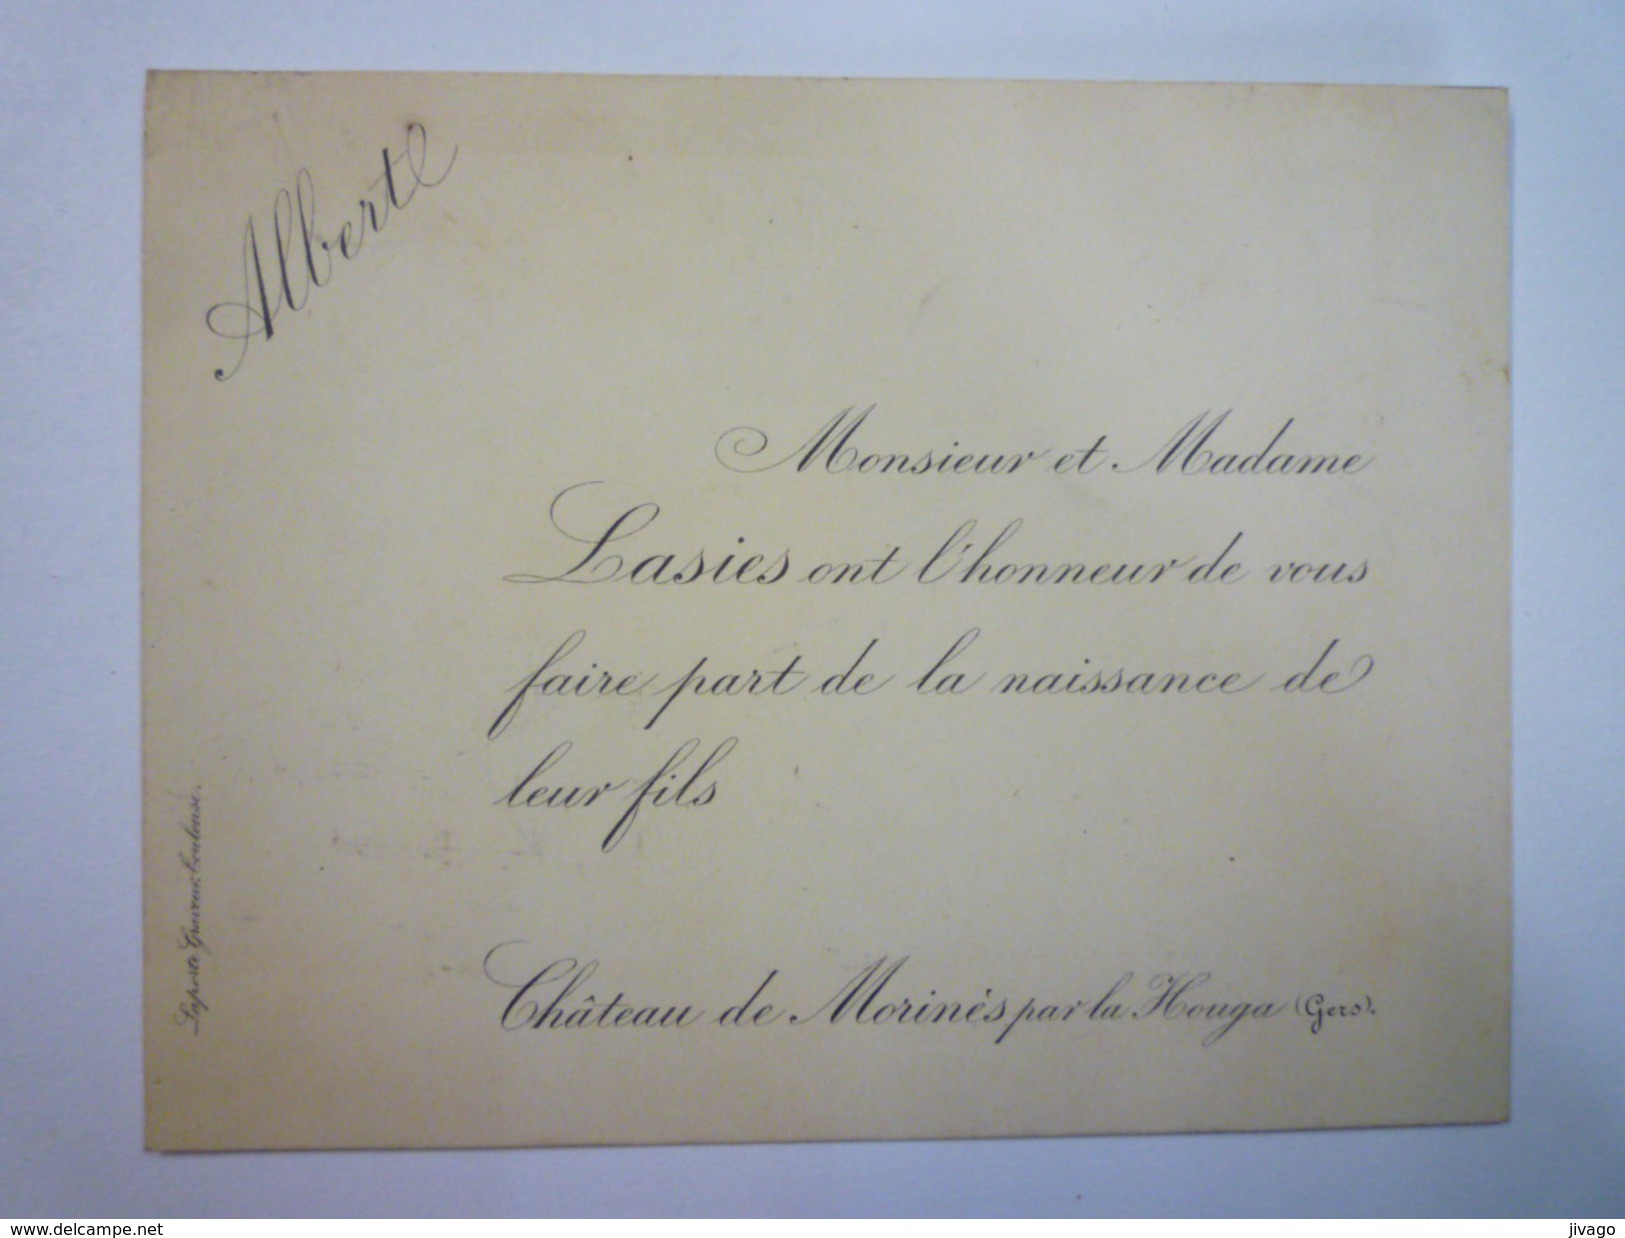 Albert
Monsieur et Madame
Lasies ont l'honneur de vous
faire part de la naissance de
leur fils
Château de Morinès par la Houga (Gers).
Laporte Graveur, Toulouse.
www.delcampe.net
jivago